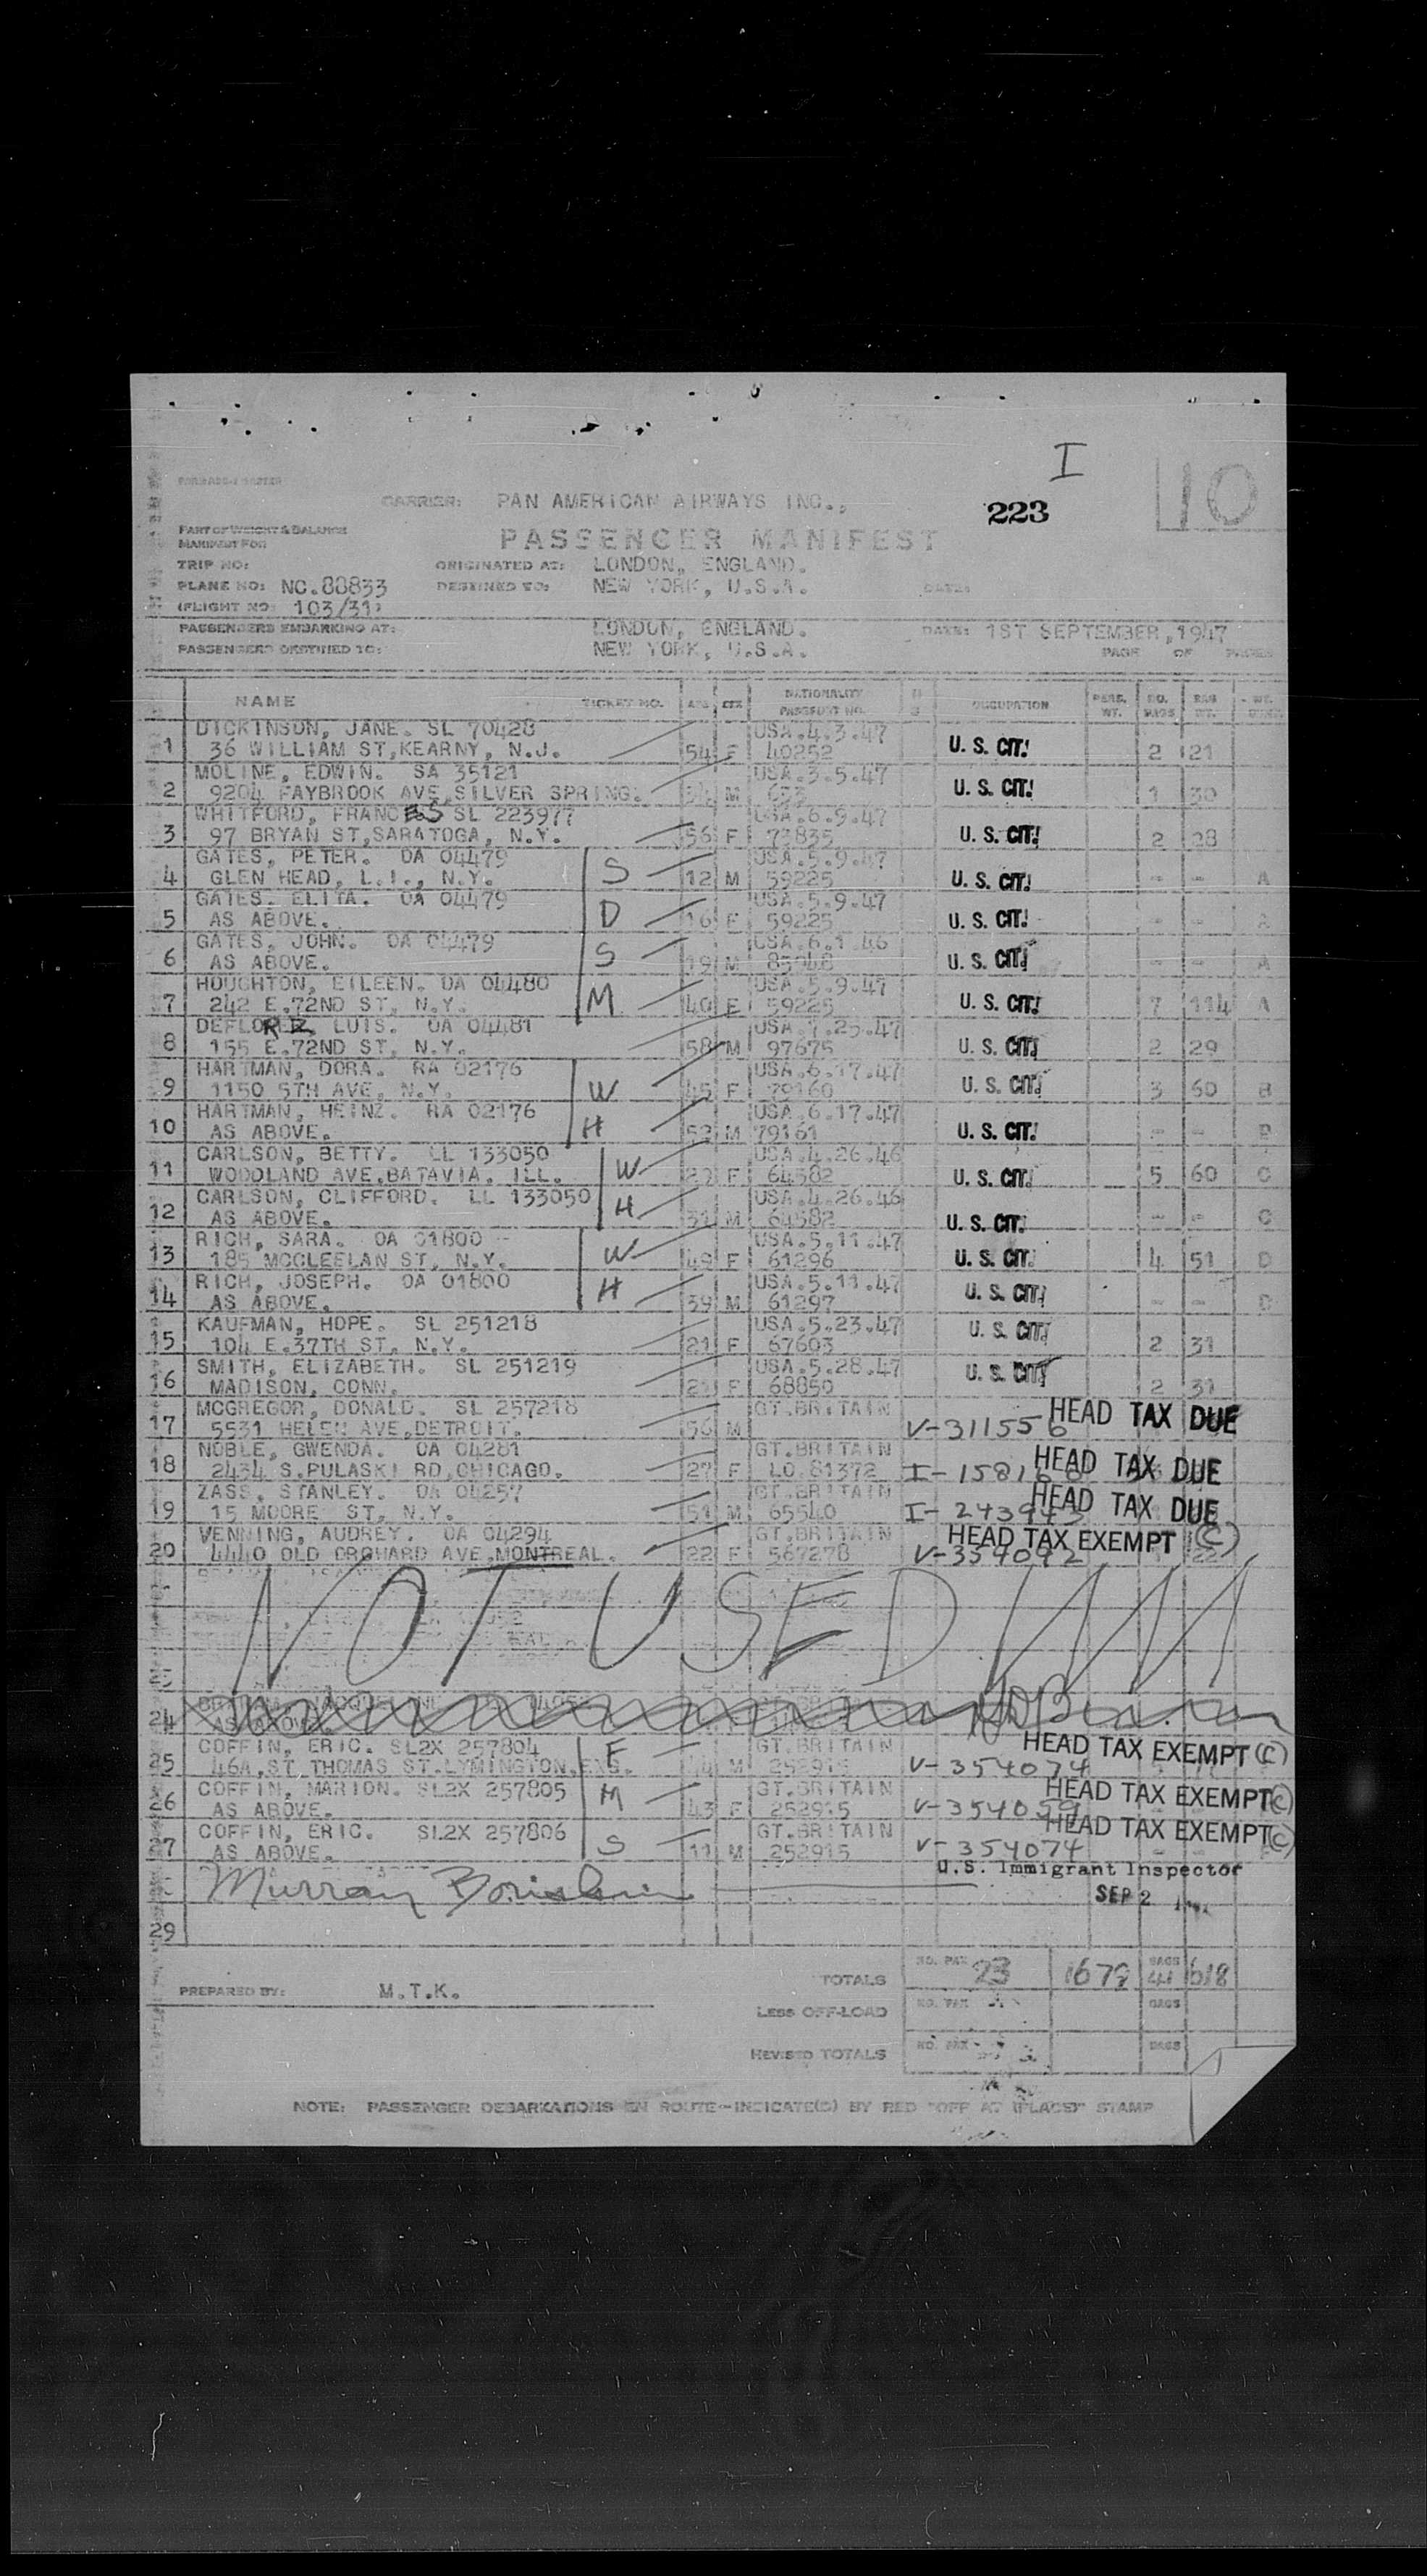 I
10
CARRIER: PAN AMERICAN AIRWAYS INC.,
223
PART OF WEIGHT & BALANCE
MANIFEST FOR
PASSENGER MANIFEST
TRIP NO: ORIGINATED AT: LONDON, ENGLAND.
PLANE NO: NC.88833 DESTINED TO: NEW YORK, U.S.A. DATE:
(FLIGHT NO 103/31)
PASSENGERS EMBARKING AT: LONDON, ENGLAND. DATE: 1ST SEPTEMBER, 1947
PASSENGERS DESTINED TO: NEW YORK, U.S.A. PAGE OF PAGES
NAME TICKET NO. AGE SEX NATIONALITY PASSPORT NO. OCCUPATION PERS. WT. NO. BAGS BAG WT.
DICKINSON, JANE. SL 70428 USA.4.3.47
1 36 WILLIAM ST, KEARNY, N.J. 54 F 40252 U. S. CIT. 2 21
MOLINE, EDWIN. SA 35121 USA.3.5.47
2 9204 FAYBROOK AVE, SILVER SPRING. M U. S. CIT. 1 30
WHITFORD, FRANCES SL 223977 USA.6.9.47
3 97 BRYAN ST, SARATOGA, N.Y. 56 F 73835 U. S. CIT. 2 28
GATES, PETER. OA 04479 USA.5.9.47
4 GLEN HEAD, L.I., N.Y. S 12 M 59225 U. S. CIT. - - A
GATES. ELITA. OA 04479 USA.5.9.47
5 AS ABOVE. D 16 F 59225 U. S. CIT. - - A
GATES, JOHN. OA 04479 USA.6.1.46
6 AS ABOVE. S 19 M 83948 U. S. CIT. - - A
HOUGHTON, EILEEN. OA 04480 USA.5.9.47
7 242 E.72ND ST, N.Y. M 40 F 59225 U. S. CIT. 7 114 A
DEFLOREZ, LUIS. OA 04481 USA.7.25.47
8 155 E.72ND ST, N.Y. 58 M 97675 U. S. CIT. 2 29
HARTMAN, DORA. RA 02176 USA.6.17.47
9 1150 5TH AVE, N.Y. W 45 F 79160 U. S. CIT. 3 60 B
HARTMAN, HEINZ. RA 02176 USA.6.17.47
10 AS ABOVE. H 52 M 79161 U. S. CIT. - - B
CARLSON, BETTY. LL 133050 USA.4.26.46
11 WOODLAND AVE, BATAVIA, ILL. W F 64582 U. S. CIT. 5 60 C
CARLSON, CLIFFORD. LL 133050 USA.4.26.46
12 AS ABOVE. H 31 M 64582 U. S. CIT. - - C
RICH, SARA. OA 01800 USA.5.11.47
13 185 MCCLEELAN ST, N.Y. W 49 F 61296 U. S. CIT. 4 51 D
RICH, JOSEPH. OA 01800 USA.5.11.47
14 AS ABOVE. H 39 M 61297 U. S. CIT. - - D
KAUFMAN, HOPE. SL 251218 USA.5.23.47
15 104 E.37TH ST, N.Y. 21 F 67603 U. S. CIT. 2 31
SMITH, ELIZABETH. SL 251219 USA.5.28.47
16 MADISON, CONN. F 68850 U. S. CIT. 2 31
MCGREGOR, DONALD. SL 257218 GT.BRITAIN
17 5531 HELEN AVE, DETROIT. 56 M V-311556 HEAD TAX DUE
NOBLE, GWENDA. OA 04281 GT.BRITAIN
18 2434 S.PULASKI RD, CHICAGO. 27 F LO.81372 HEAD TAX DUE
ZASS, STANLEY. OA 04257 GT.BRITAIN
19 15 MOORE ST, N.Y. 51 M 65540 I-243943 HEAD TAX DUE
VENNING, AUDREY. OA 04294 GT.BRITAIN HEAD TAX EXEMPT (C)
20 4440 OLD ORCHARD AVE, MONTREAL. 22 F 567278 V-354092
NOT USED
24 AS ABOVE.
COFFIN, ERIC. SL2X 257804 GT.BRITAIN HEAD TAX EXEMPT (C)
25 46A, ST. THOMAS ST. LYMINGTON, ENG. F M 252915 V-354074
COFFIN, MARION. SL2X 257805 GT.BRITAIN HEAD TAX EXEMPT (C)
26 AS ABOVE. M 43 F 252915 V-354059
COFFIN, ERIC. SL2X 257806 GT.BRITAIN HEAD TAX EXEMPT (C)
27 AS ABOVE. S 11 M 252915 V-354074
U.S. Immigrant Inspector
Murray
SEP 2
29
TOTALS NO. PAX 23 1679 BAGS 41 618
PREPARED BY: M.T.K.
LESS OFF-LOAD NO. PAX BAGS
REVISED TOTALS NO. PAX BAGS
NOTE: PASSENGER DEBARKATIONS EN ROUTE-INDICATE(D) BY RED "OFF AT (PLACE)" STAMP